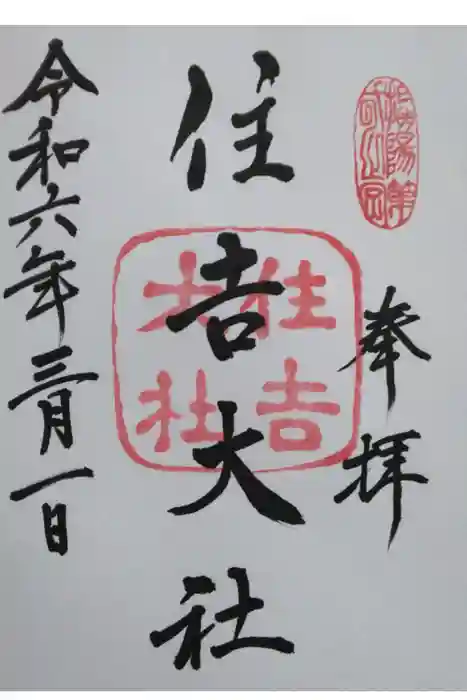 奉拝
住吉大社
住吉大社
令和六年三月一日